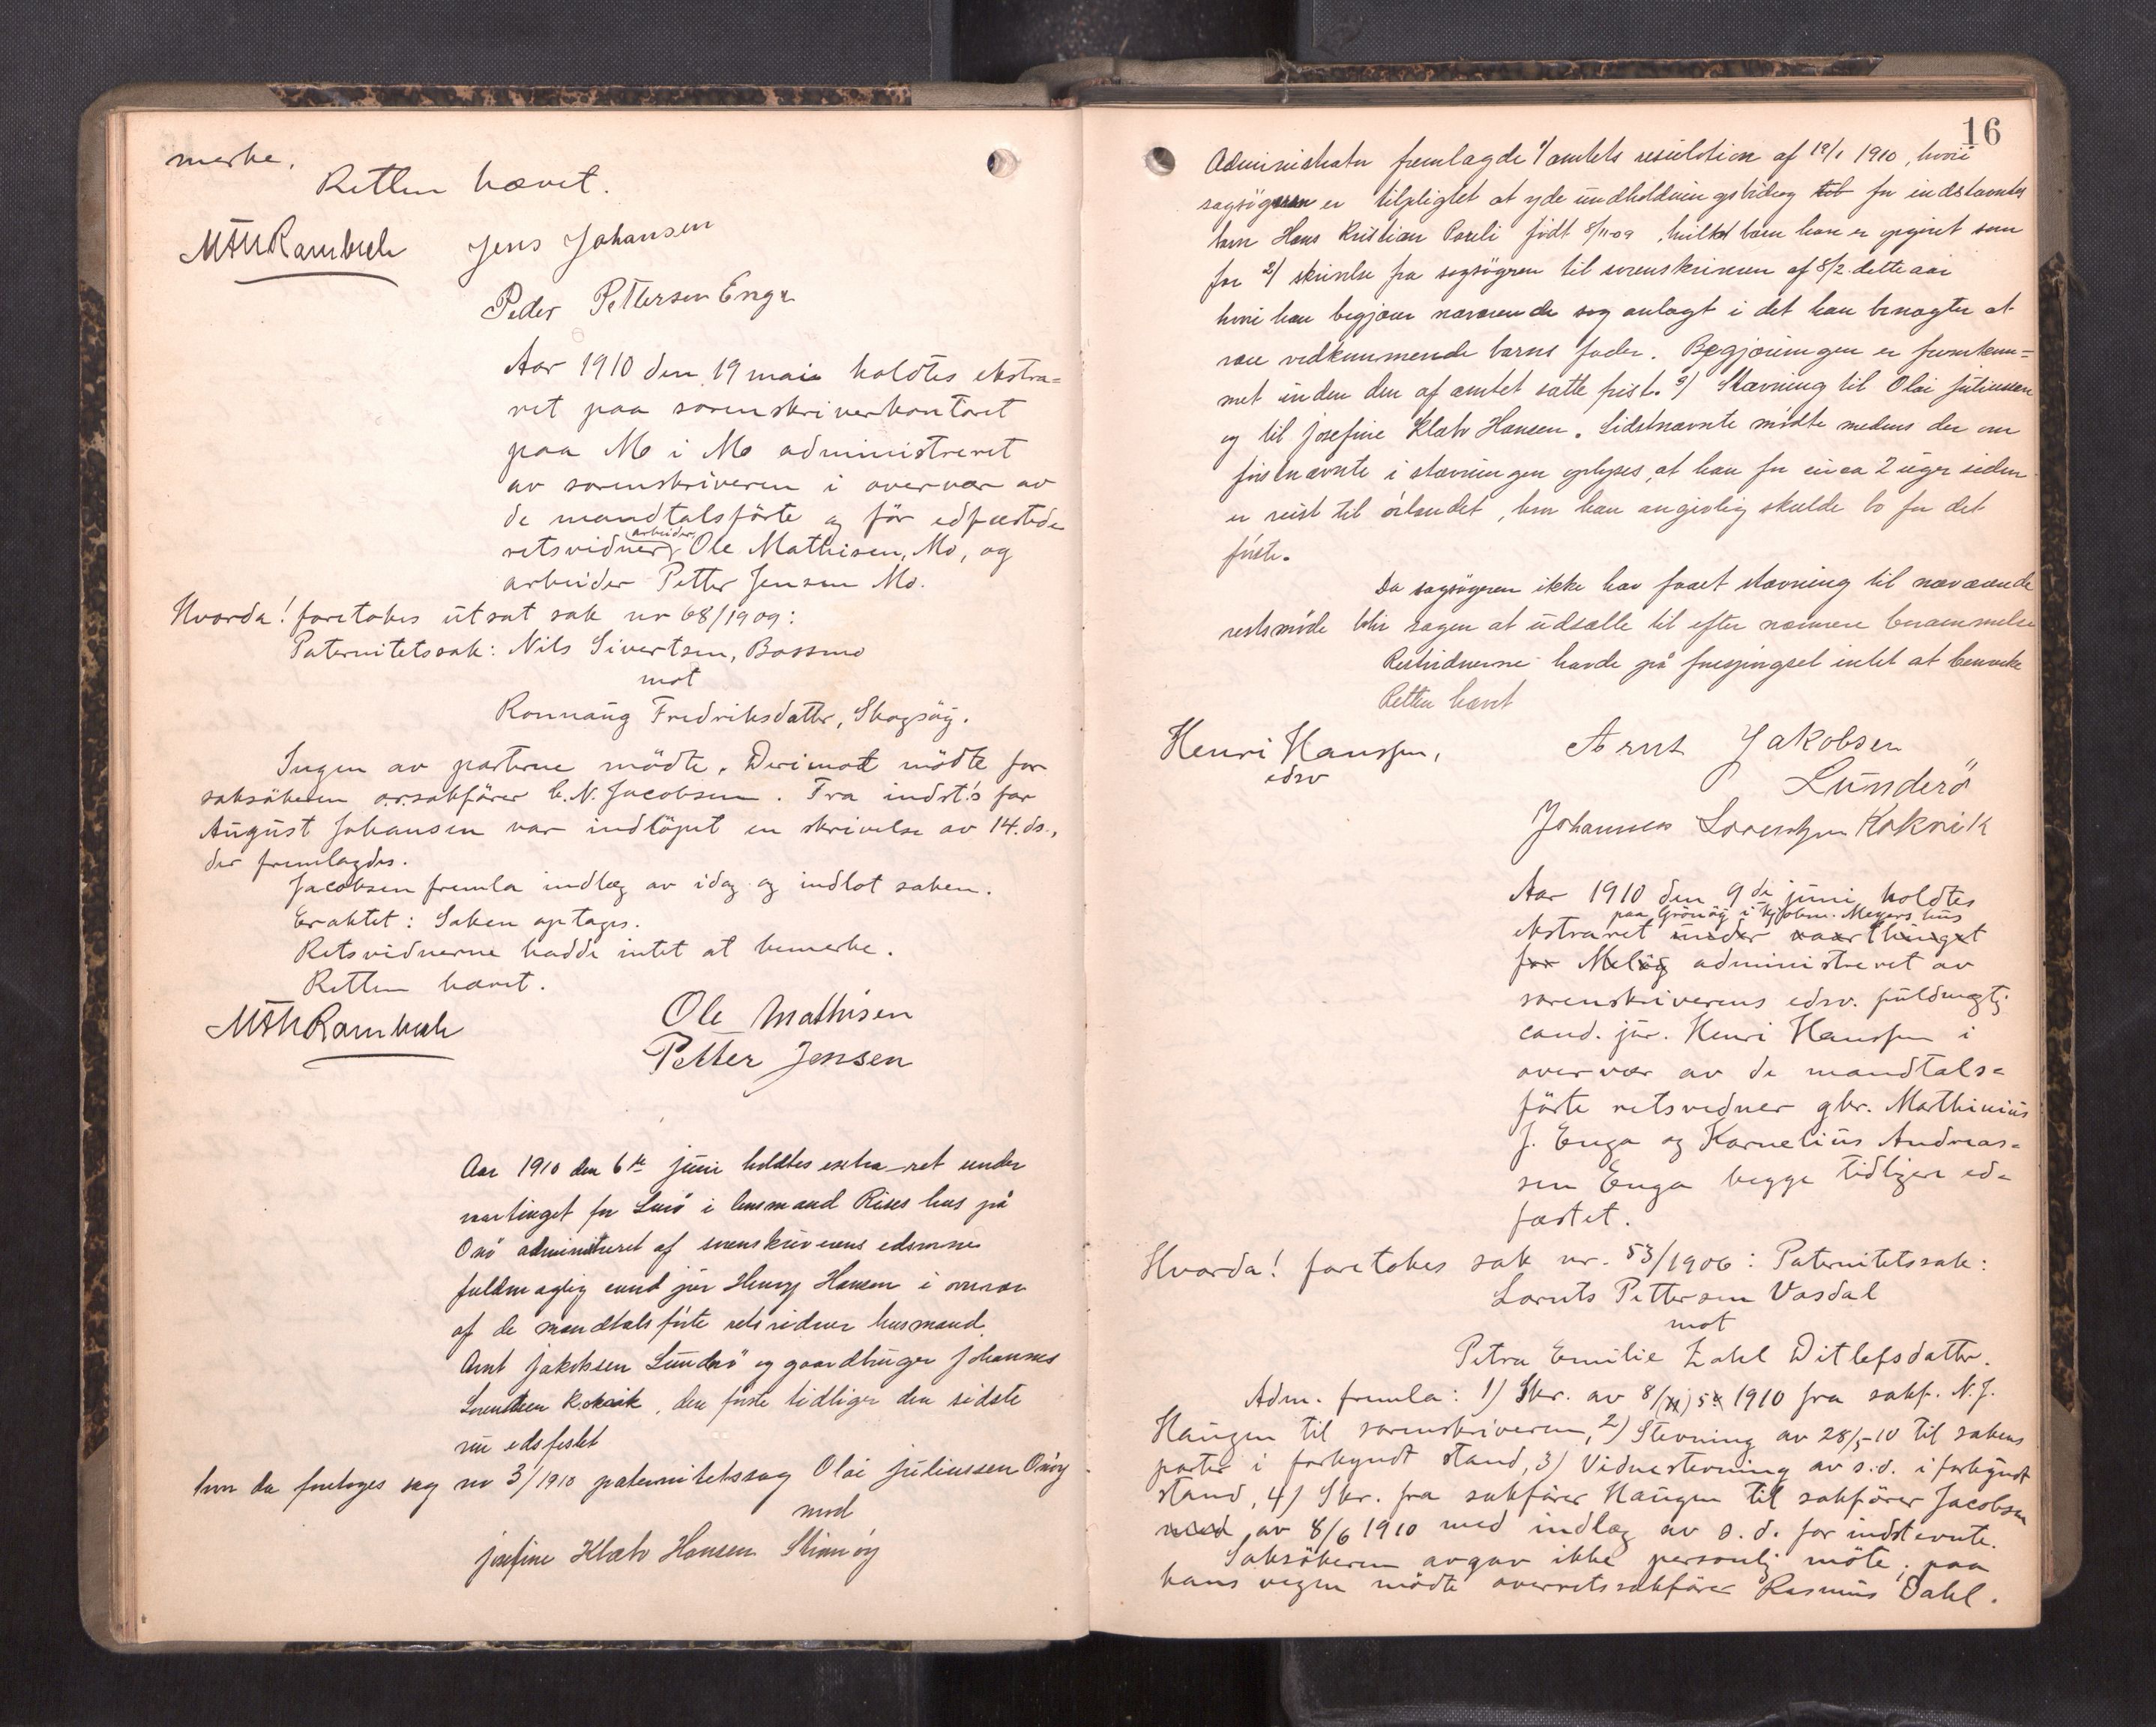 merke.
Retten hævet.
MAURambech Jens Johansen
Peder Pettersen Enge
Aar 1910 den 19 mai holdtes ekstra-
ret paa sorenskriverkontoret
paa Mo i Mo administreret
av sorenskriveren i overvær av
de mandtalsförte og för edfæstede
arbeider
retsvidner Ole Mathisen, Mo, og
arbeider Petter Jensen Mo.
Hvorda! foretokes utsat sak nr 68/1909:
Paternitetssak: Nils Sivertsen, Bossmo
mot
Ronnaug Fredriksdatter, Skogsöy.
Ingen av parterne mödte. Derimot mödte for
saksökeren o.r.sakförer C. N. Jacobsen. Fra indst's far
August Johansen var indlöpet en skrivelse av 14. ds.,
der fremlagdes.
Jacobsen fremla indlæg av idag og indlot saken.
Eraktet: Saken optages.
Retsvidnerne hadde intet at bemerke.
Retten hævet.
MAURambech Ole Mathisen
Petter Jensen
Aar 1910 den 6te juni holdtes extra-ret under
vaartinget for Lurö i lensmand Riises hus på
Onö administreret af sorenskriverens edsvorne
fuldmægtig cand jur Henry Hansen i overvær
af de mandtalsförte retsvidner husmand
Arnt Jakobsen Lunderö og gaardbruger Johannes
Lorentsen Kokvik, den förste tidligere den sidste
nu edsfestet
hvor da foretoges sag no 3/1910 paternitetssag Olai Juliussen Onöy
mod
Josefine Klæbo Hansen
16
Administrator fremlagde 1/ amtets resolution af 19/1 1910, hvori
sagsögeren er tilpligtet at yde underholdningsbidrag til for indstævntes
barn Hans Kristian Pareli födt 8/11-09, hvilket barn han er opgivet som
far 2/ skrivelse fra sagsögeren til sorenskriveren af 8/2 dette aar
hvori han begjærer nærværende sag anlagt i det han benægter at
være vedkommende barns fader. Begjæringen er fremkom-
met inden den af amtet satte frist. 3) Stævning til Olai Juliussen
og til Josefine Klæbo Hansen. Sidstnævnte mödte medens der om
förstnævnte i stævningen oplyses, at han for circa 2 uger siden
er reist til Örlandet, hvor han angivelig skulde bo for det
förste.
Da sagsögeren ikke har faaet stævning til nærværende
retsmöde blir sagen at udsætte til efter nærmere berammelse
Retsvidnerne havde på forespörgsel intet at bemerke
Retten hævet
Henri Hanssen, Arnt Jakobsen
edsv Lunderö
Johannes Lorentsen Kokvik
Aar 1910 den 9de juni holdtes
paa Grönöy i kjöbm. Meyers hus
ekstraret under vaarthinget
for Melöy administreret av
sorenskriverens edsv. fuldmægtig
cand. jur. Henri Hanssen i
overvær av de mandtals-
förte retsvidner gbr. Mathinius
J. Enga og Kornelius Andreas-
sen Enga begge tidligere ed-
fæstet.
Hvorda! foretokes sak nr. 53/1906: Paternitetssak:
Lornts Pettersen Vasdal
mot
Petra Emilie Zahl Ditlefsdatter.
Adm. fremla: 1) Skr. av 8/ 5 1910 fra sakf. N. J.
Haugen til sorenskriveren, 2) Stevning av 28/5-10 til sakens
parter i forkyndt stand, 3) Vidnestevning av s.d. i forkyndt
stand, 4) Skr. fra sakförer Haugen til sakförer Jacobsen
med av 8/6 1910 med indlæg av s. d. for indstevnte.
Saksökeren avgav ikke personlig möte; paa
hans vegne mödte overretssakförer Rasmus Dahl.